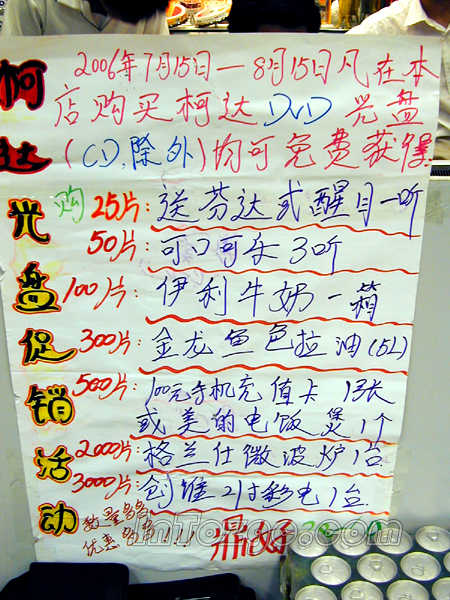 柯达光盘促销活动
2006年7月15日—8月15日凡在本
店购买柯达DVD光盘
(CD,除外)均可免费获得
购25片:送芬达或醒目一听
50片:可口可乐3听
100片:伊利牛奶一箱
300片:金龙鱼色拉油(5L)
500片:100元手机充值卡1张
或美的电饭煲1个
2000片:格兰仕微波炉1台
3000片:创维21寸彩电1台.
数量多多
优惠多多
鼎好